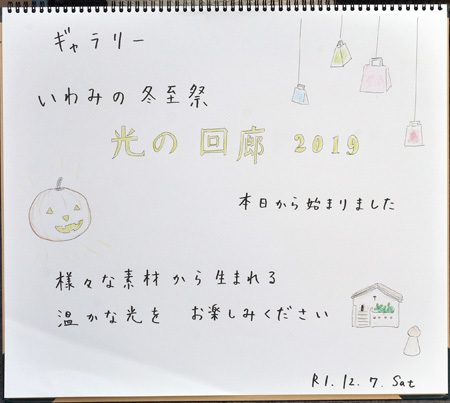 ギャラリー
いわみの冬至祭
光の回廊 2019
本日から始まりました
様々な素材から生まれる
温かな光を お楽しみください
R1.12.7.Sat